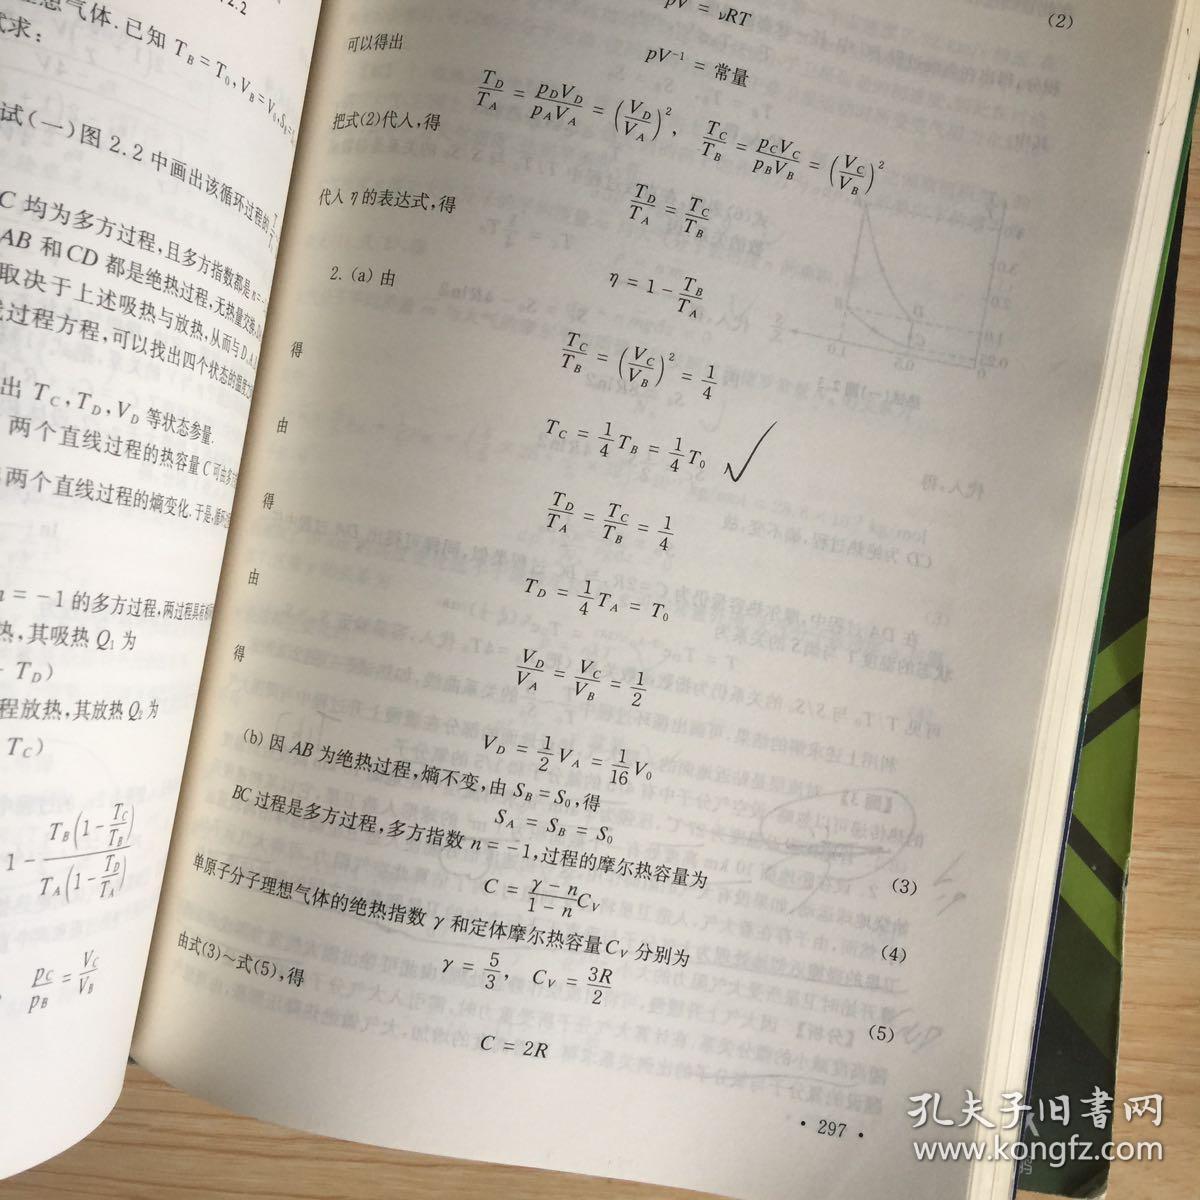 2.2
理想气体.已知 T_B=T_0,V_B=V_0,S_B=
式求：
试(一)图 2.2 中画出该循环过程的
C 均为多方过程,且多方指数都是 n=-
AB 和CD 都是绝热过程,无热量交换,
取决于上述吸热与放热,从而与D,A,
过程方程,可以找出四个状态的温度之
出 T_C,T_D,V_D 等状态参量.
两个直线过程的热容量 C 可由多方
两个直线过程的熵变化.于是,循环
n=-1 的多方过程,两过程具有相
热,其吸热 Q_1 为
- T_D)
程放热,其放热 Q_2 为
T_C)
1-\frac{T_B(1-\frac{T_C}{T_B})}{T_A(1-\frac{T_D}{T_A})}
\frac{p_C}{p_B}=\frac{V_C}{V_B}
pV = νRT (2)
可以得出
pV^{-1} = 常量
\frac{T_D}{T_A}=\frac{p_D V_D}{p_A V_A}=(\frac{V_D}{V_A})^2, \frac{T_C}{T_B}=\frac{p_C V_C}{p_B V_B}=(\frac{V_C}{V_B})^2
把式(2)代人,得
\frac{T_D}{T_A}=\frac{T_C}{T_B}
代人 η 的表达式,得
η = 1-\frac{T_B}{T_A}
2. (a) 由
\frac{T_C}{T_B}=(\frac{V_C}{V_B})^2=\frac{1}{4}
得
T_C=\frac{1}{4}T_B=\frac{1}{4}T_0
由
\frac{T_D}{T_A}=\frac{T_C}{T_B}=\frac{1}{4}
得
T_D=\frac{1}{4}T_A=T_0
由
\frac{V_D}{V_A}=\frac{V_C}{V_B}=\frac{1}{2}
得
V_D=\frac{1}{2}V_A=\frac{1}{16}V_0
(b) 因 AB 为绝热过程,熵不变,由 S_B=S_0,得
S_A = S_B = S_0 (3)
BC 过程是多方过程,多方指数 n=-1,过程的摩尔热容量为
C=\frac{γ-n}{1-n}C_V (4)
单原子分子理想气体的绝热指数 γ 和定体摩尔热容量C_V 分别为
γ=\frac{5}{3}, C_V=\frac{3R}{2} (5)
由式(3)~式(5),得
C = 2R
· 297 ·
孔夫子旧书网
www.kongfz.com